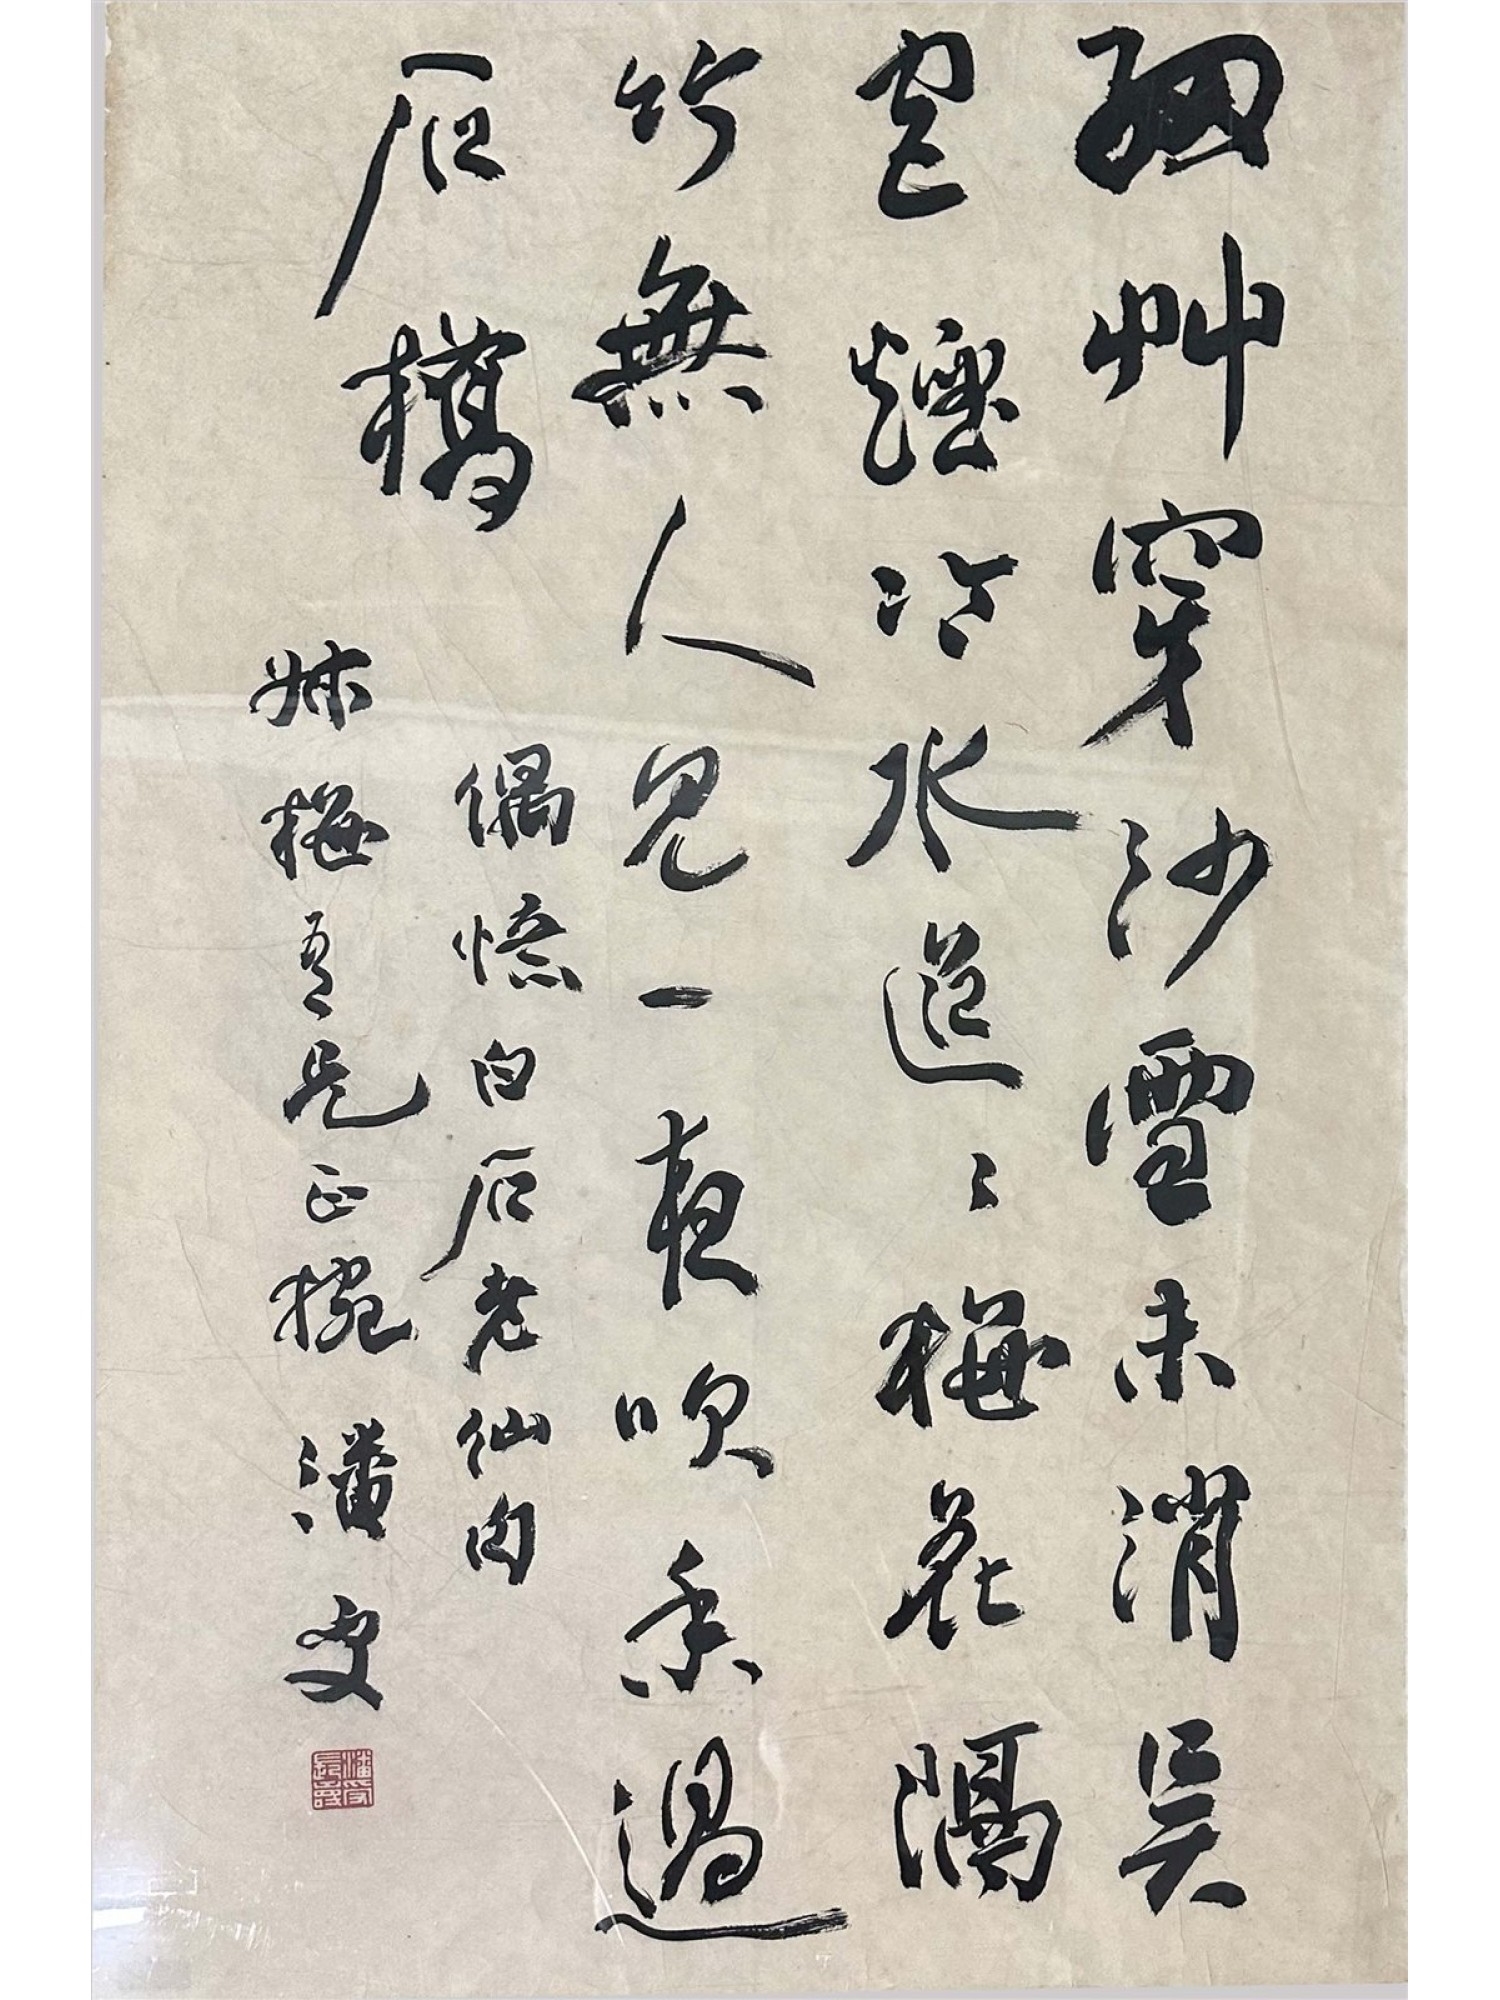 細艸穿沙雪未消吳
宮煙冷水迢〻梅花隔
竹無人見一夜吹香過
石橋
偶憶白石老仙句
梅吾兄正捥 潘受